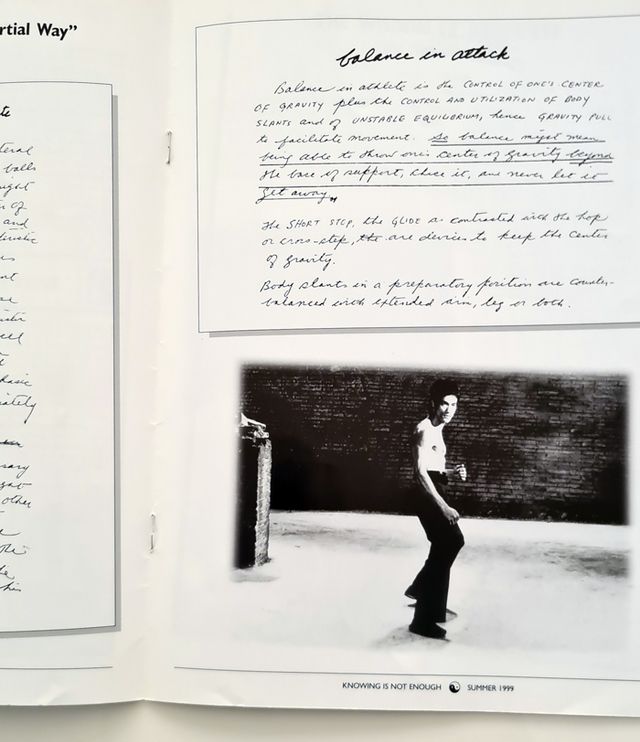 rtial Way”
te
teral
balls
ught
of
and
teristic
ent
basic
ately
sary
other
his
balance in attack
Balance in athlete is the CONTROL OF ONE'S CENTER
OF GRAVITY plus the CONTROL AND UTILIZATION OF BODY
SLANTS and of UNSTABLE EQUILIBRIUM, hence GRAVITY PULL
to facilitate movement. So balance might mean
being able to throw one's center of gravity beyond
the base of support, chase it, and never let it
get away.
The SHORT STEP, the GLIDE as contrasted with the hop
or cross-step, are devices to keep the center
of gravity.
Body slants in a preparatory position are counter-
balanced with extended arm, leg or both.
KNOWING IS NOT ENOUGH SUMMER 1999